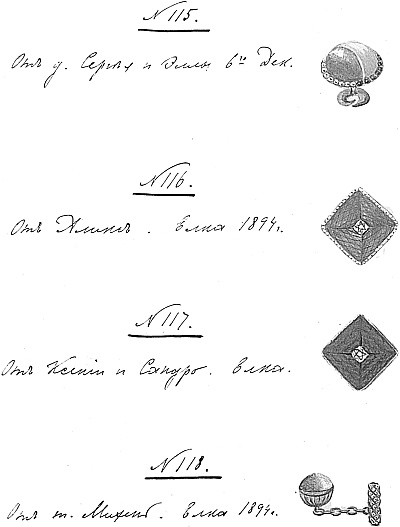 N 115.
Отъ д. Сергѣя и Эллы. 6го Дек.
N 116.
Отъ Аликсъ. Елка 1894 г.
N 117.
Отъ Ксеніи и Сандро. Елка.
N 118.
Отъ т. Михень. Елка 1894 г.